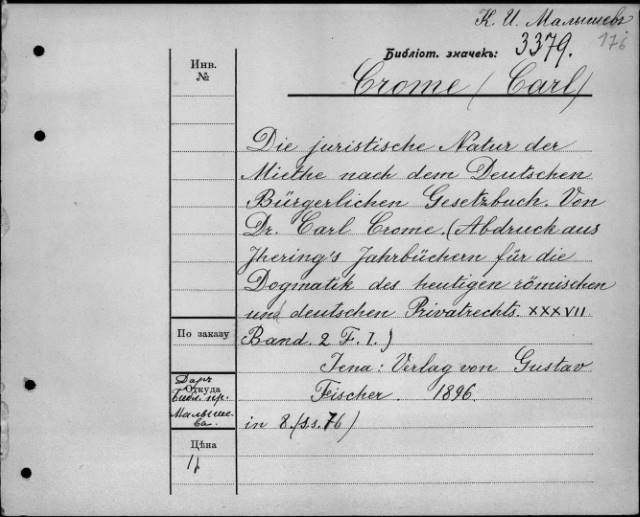 К. И. Малышевъ
176
Библіот. значекъ: 3379.
Crome (Carl)
Инв.
№
Die juristische Natur der
Miethe nach dem Deutschen
Bürgerlichen Gesetzbuch. Von
Dr. Carl Crome. (Abdruck aus
Jhering's Jahrbüchern für die
Dogmatik des heutigen römischen
und deutschen Privatrechts. XXXVII
Band. 2 F. I.)
Jena: Verlag von Gustav
Fischer. 1896.
in 8. (s.s. 76)
По заказу
Откуда
Даръ
библ. пр.
Малыше-
ва.
Цѣна